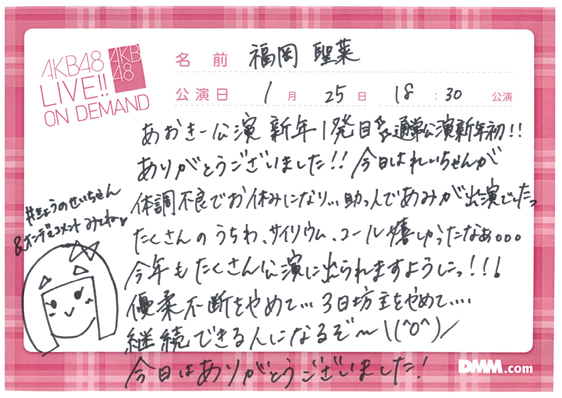 AKB48
LIVE!!
ON DEMAND
AKB
48
名前 福岡 聖菜
公演日 1月 25日 18:30 公演
あおきー公演 新年1発目&通常公演新年初!!
ありがとうございました!! 今日はれいちゃんが
体調不良でお休みになり… 助っ人であみが出演でしたっ
たくさんのうちわ、サイリウム、コール嬉しかったなぁ。。。
今年もたくさん公演に出られますようにっ!!!
優柔不断をやめて… 3日坊主をやめて….
継続できる人になるぞ〜\(^o^)/
今日はありがとうございました!
#きょうのせいちゃん
&オンデマコメントみてねッ
DMM.com